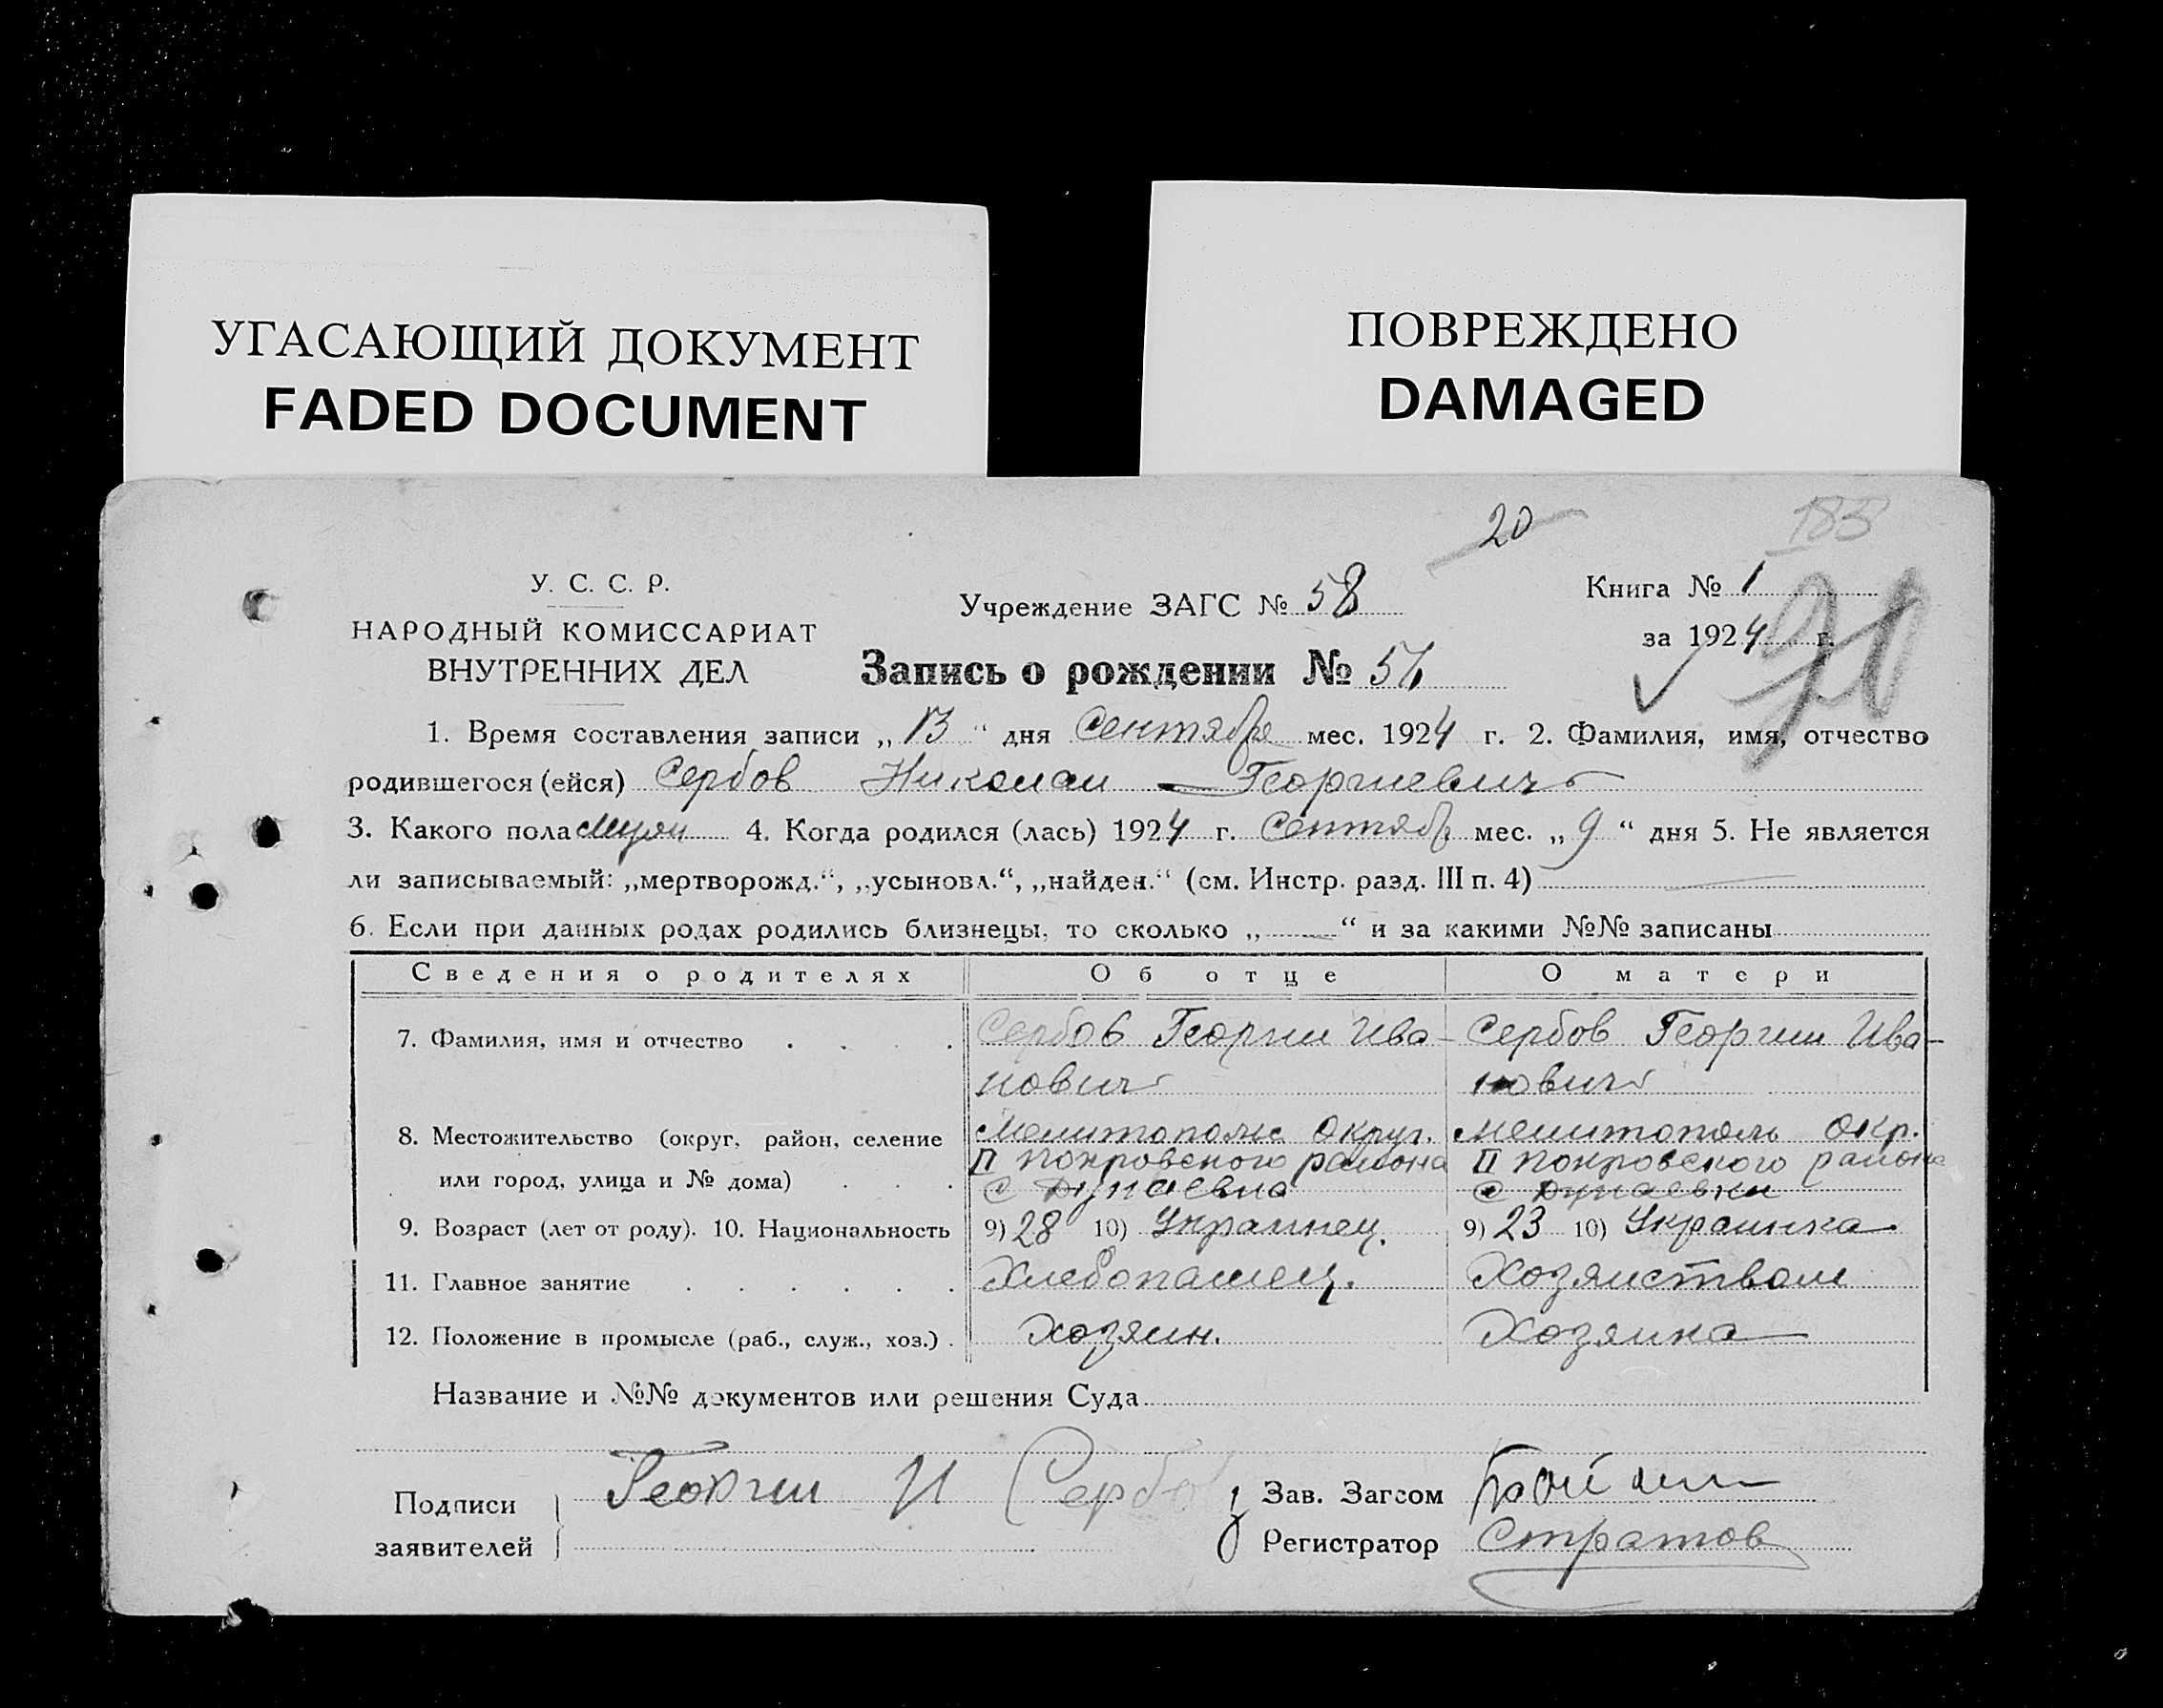 УГАСАЮЩИЙ ДОКУМЕНТ
FADED DOCUMENT
ПОВРЕЖДЕНО
DAMAGED
20
183
У. С. С. Р.
НАРОДНЫЙ КОМИССАРИАТ
ВНУТРЕННИХ ДЕЛ
Учреждение ЗАГС № 58
Книга № 1
за 1924 г.
Запись о рождении №
1. Время составления записи „13“ дня Сентября мес. 1924 г. 2. Фамилия, имя, отчество
родившегося (ейся) Сербов Николаи Георгиевичъ
3. Какого пола Мужи 4. Когда родился (лась) 1924 г. Сентябр мес. „9“ дня 5. Не является
ли записываемый: „мертворожд.“, „усыновл.“, „найден.“ (см. Инстр. разд. III п. 4) —
6. Если при данных родах родились близнецы, то сколько „—“ и за какими №№ записаны
Сведения о родителях Об отце О матери
7. Фамилия, имя и отчество . . . . Сербов Георги Ива- Сербов Георгии Ива-
новичъ новичъ
8. Местожительство (округ, район, селение Мелитопольс округ. Мелитополь Окр.
или город, улица и № дома) . . . II Покровского района II Покровского района
с Дунаевка с Дунаевки
9. Возраст (лет от роду). 10. Национальность 9) 28 10) Украинец. 9) 23 10) Украинка
11. Главное занятие . . . . . . Хлебопашец. Хозяиством
12. Положение в промысле (раб., служ., хоз.) . Хозяин. Хозяика
Название и №№ документов или решения Суда
Подписи
заявителей
Георги И Сербо
Зав. Загсом
Регистратор Стратов